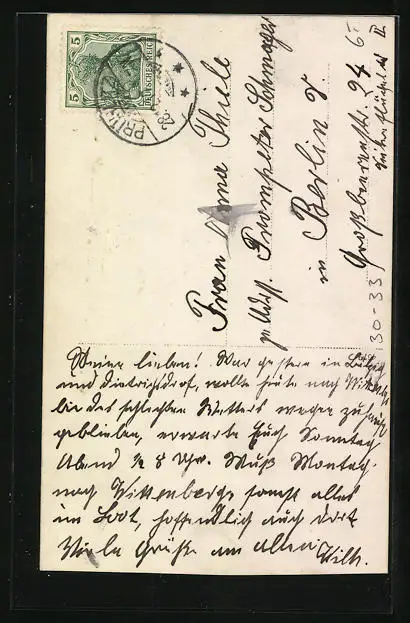 5 DEUTSCHES REICH 5
PRITZ
Frau Anna Thiele
Trompeter
in Berlin
Großbeerenstr. 94
II
30-33
Meine Lieben! War gestern in
und Dietrichsdorf, wollte heute nach
des schlechten Wetters wegen zuhause
geblieben, erwarte Euch Sonntag
Abend ½ 8 Uhr. Muß Montag
nach Wittenberge sonst alles
im Lot, hoffentlich auch dort
Viele Grüße an alle Wilh.